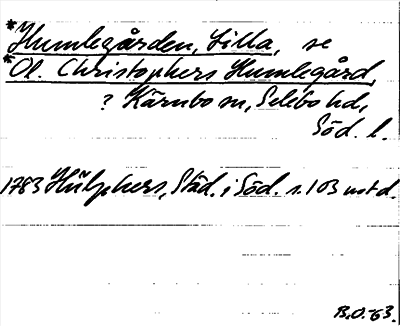 *Humlegården, Lilla, se
*Ol. Christophers Humlegård,
? Kärnbo sn, Selebo hd,
Söd. l.
1783 Hülphers, Städ. i Söd. s. 103 not d.
B.O.-63.